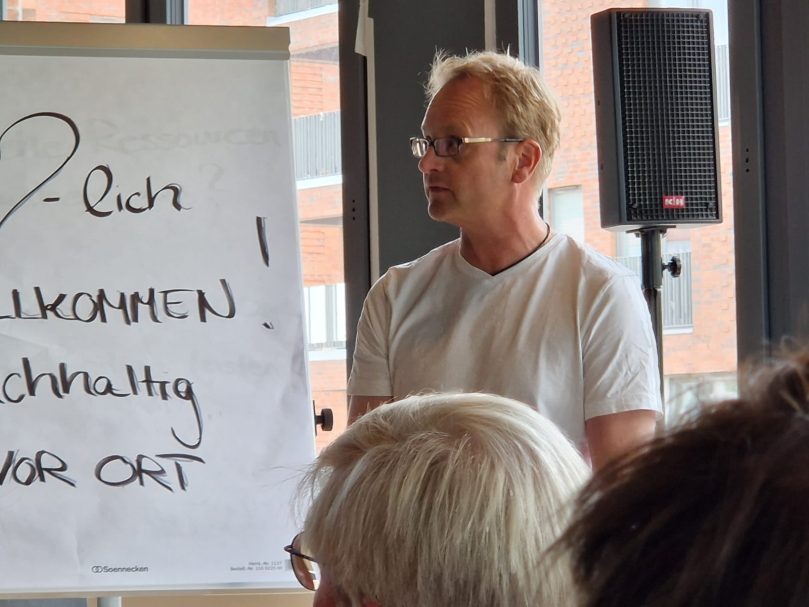 -lich
LLKOMMEN!
chhaltig
VOR ORT
Soennecken